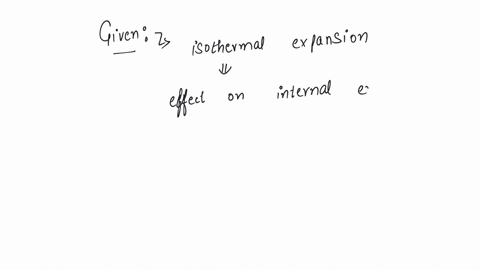 Given: isothermal expansion
⇓
effect on internal e